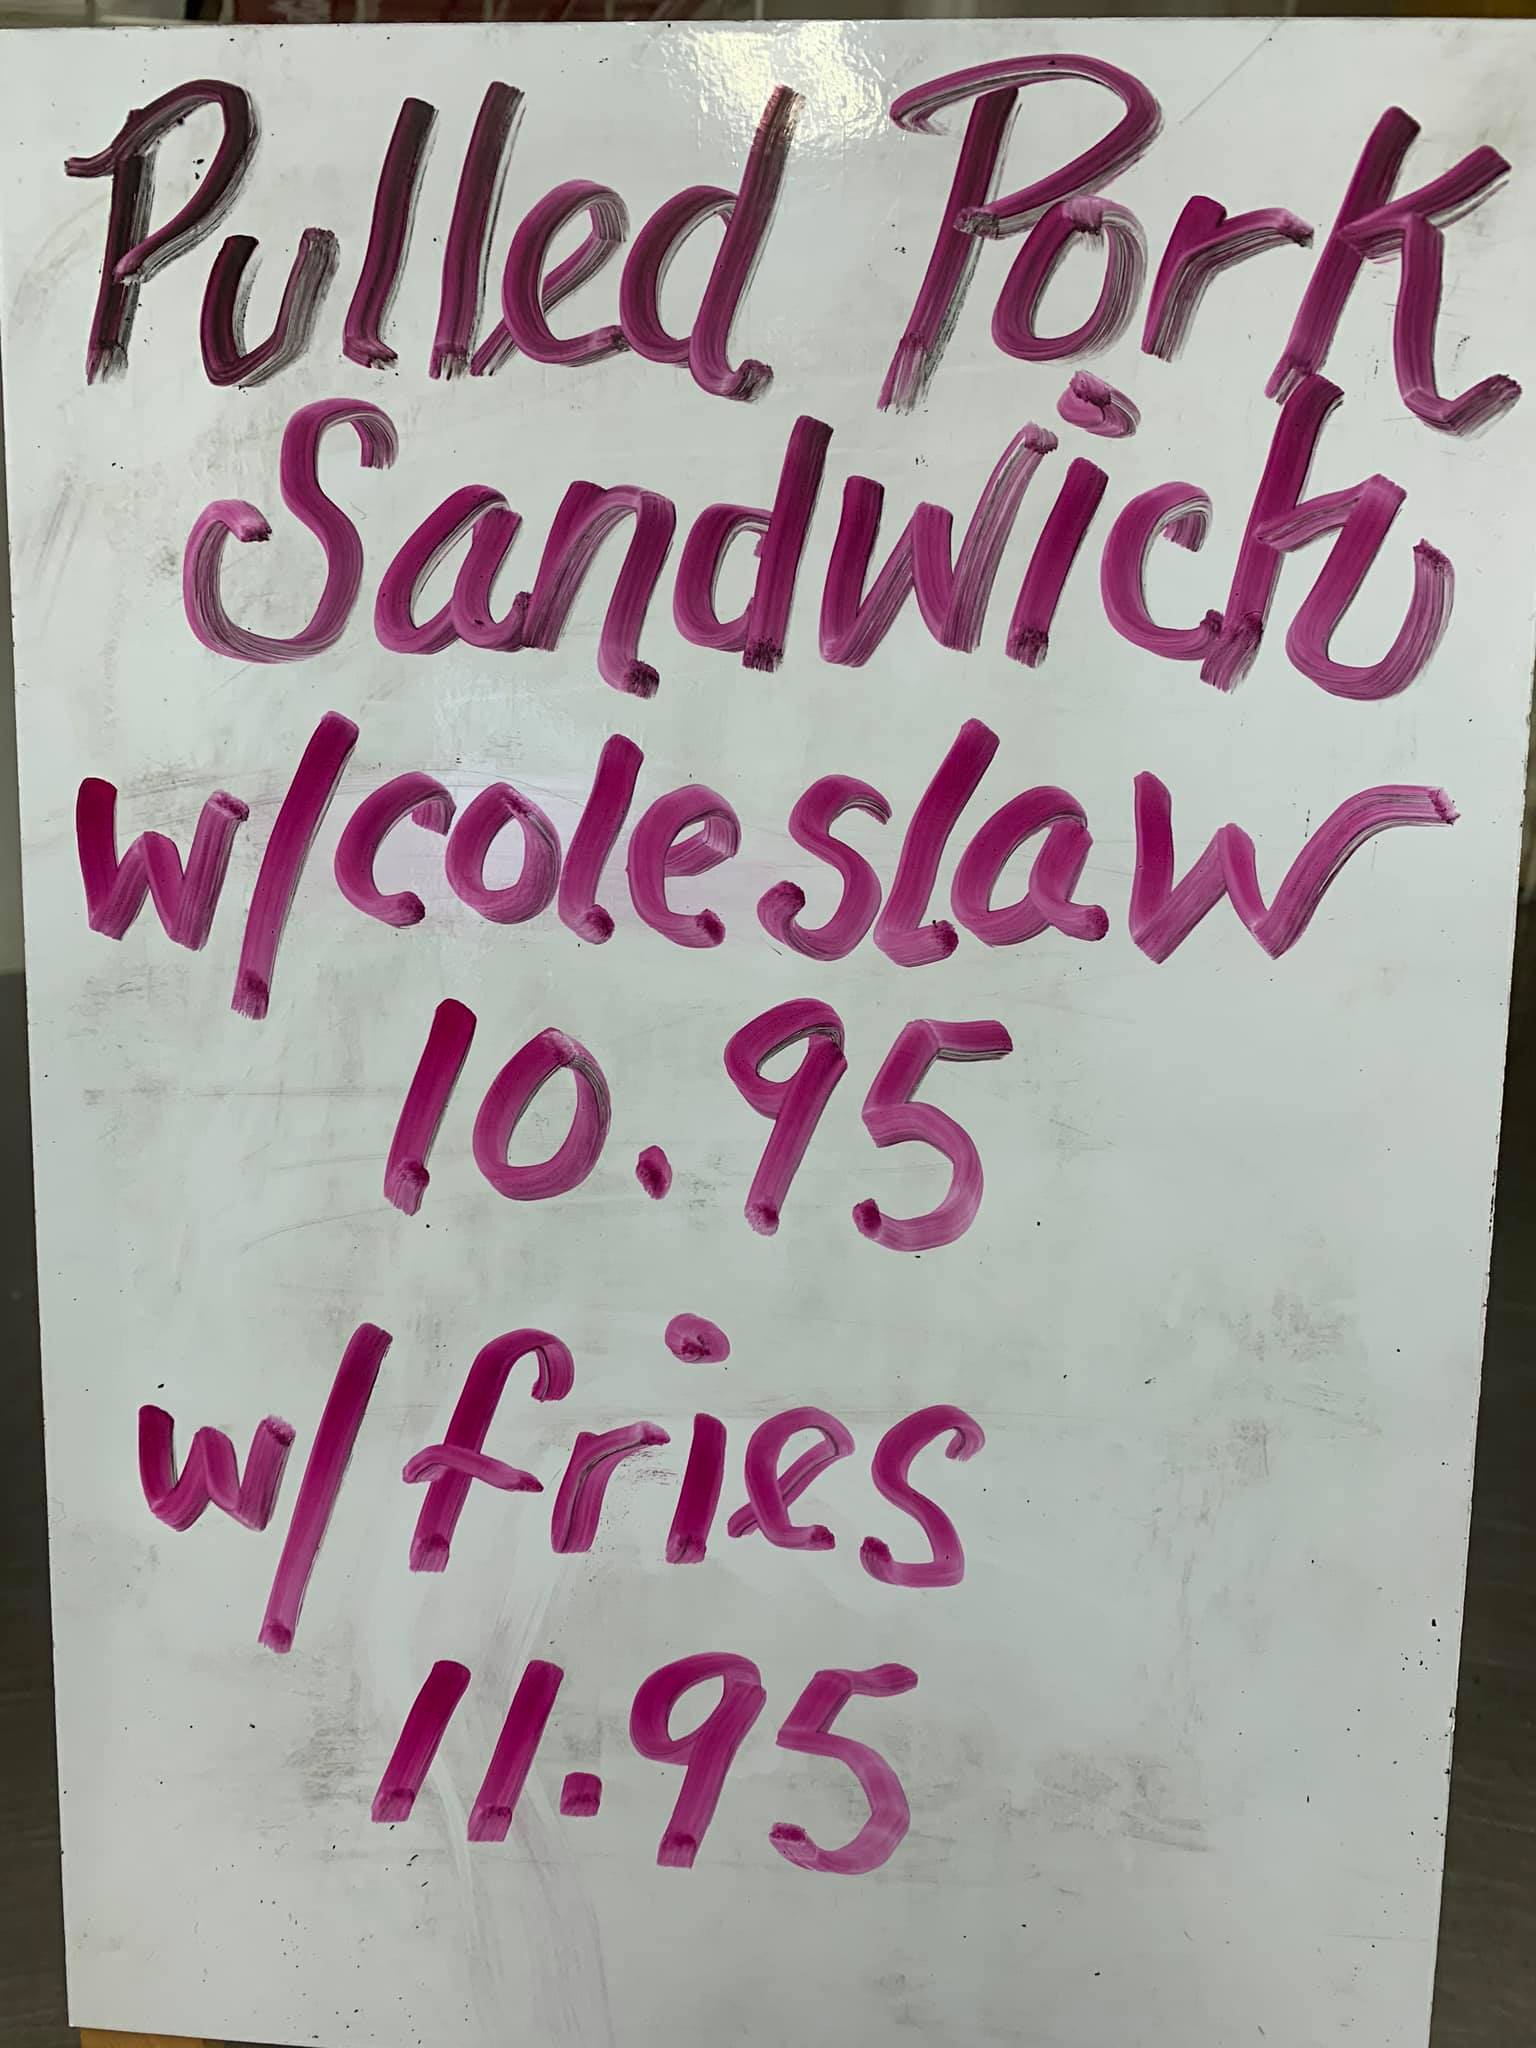 Pulled Pork
Sandwich
w/coleslaw
10.95
w/fries
11.95